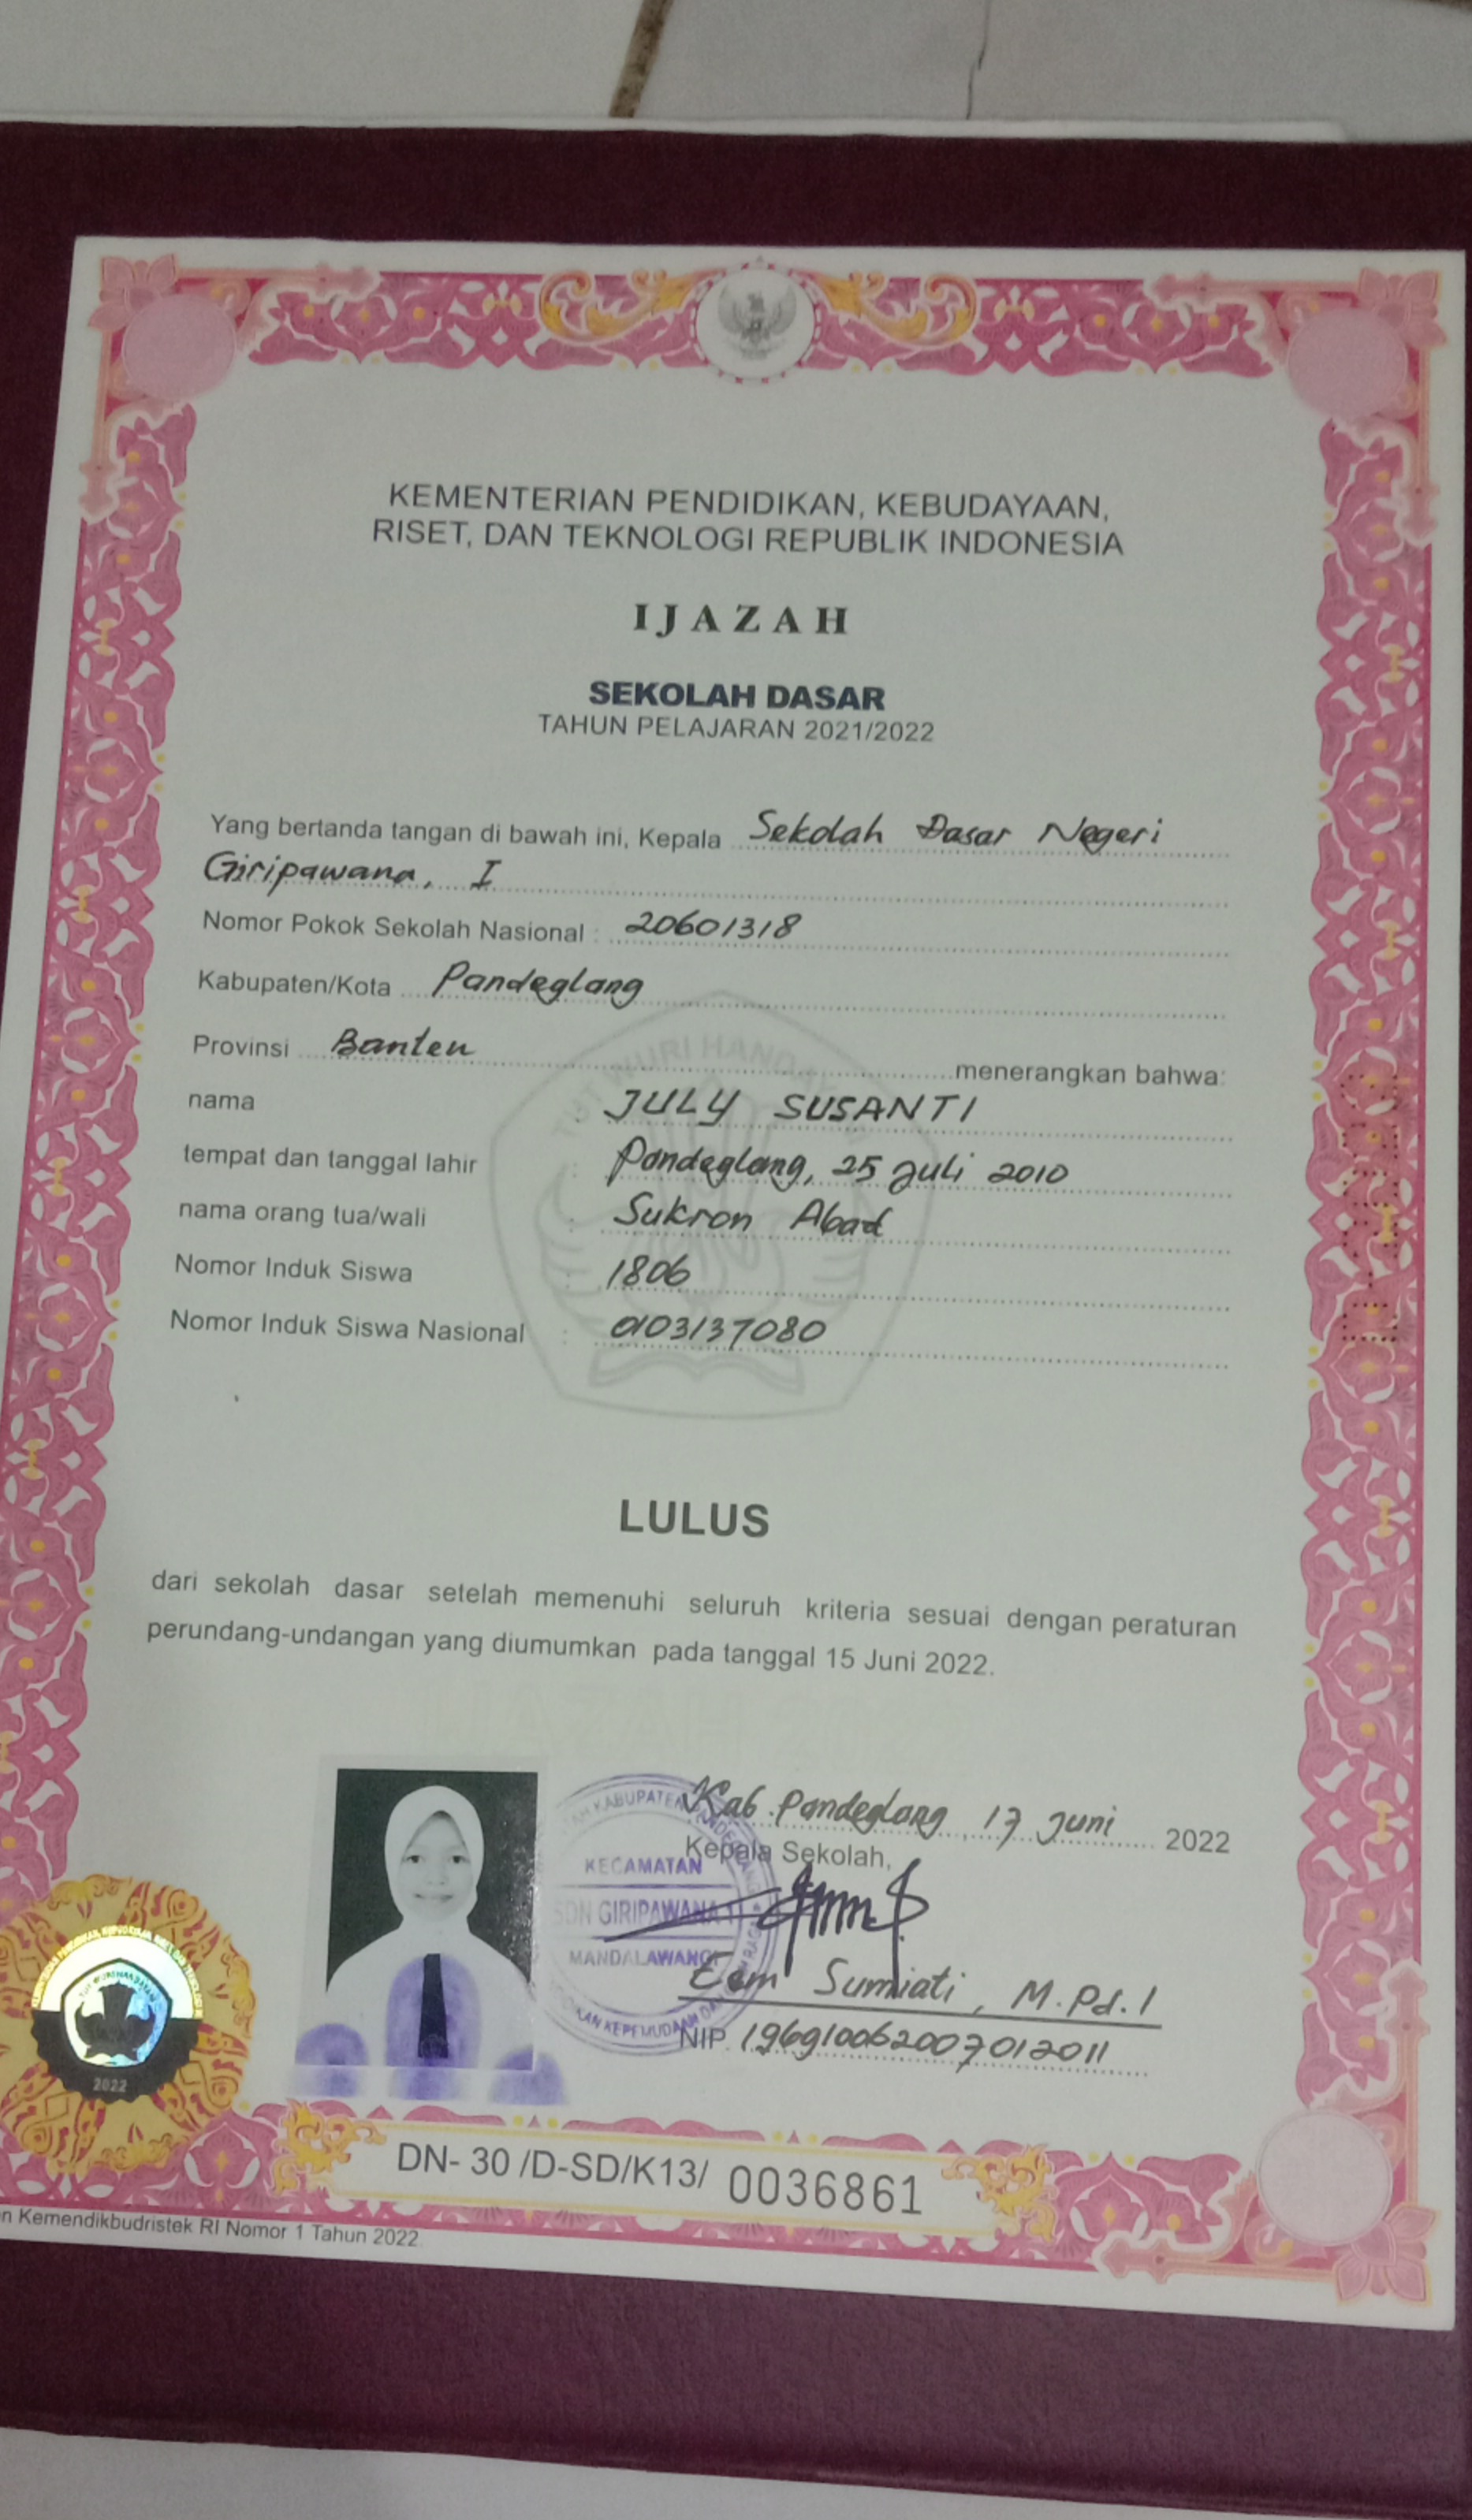 KEMENTERIAN PENDIDIKAN, KEBUDAYAAN,
RISET, DAN TEKNOLOGI REPUBLIK INDONESIA
IJAZAH
SEKOLAH DASAR
TAHUN PELAJARAN 2021/2022
Yang bertanda tangan di bawah ini, Kepala Sekolah Dasar Negeri
Giripawana, I
Nomor Pokok Sekolah Nasional : 20601318
Kabupaten/Kota Pandeglang
Provinsi Banten menerangkan bahwa:
nama JULY SUSANTI
tempat dan tanggal lahir : Pandeglang, 25 Juli 2010
nama orang tua/wali : Sukron Abad
Nomor Induk Siswa : 1806
Nomor Induk Siswa Nasional : 0103137080
LULUS
dari sekolah dasar setelah memenuhi seluruh kriteria sesuai dengan peraturan
perundang-undangan yang diumumkan pada tanggal 15 Juni 2022.
Kab. Pandeglang, 17 Juni 2022
Kepala Sekolah,
KECAMATAN
SDN GIRIPAWANA 1
MANDALAWANGI
Eem Sumiati, M.Pd.I
NIP. 196910062007012011
2022
DN- 30 /D-SD/K13/ 0036861
Kemendikbudristek RI Nomor 1 Tahun 2022